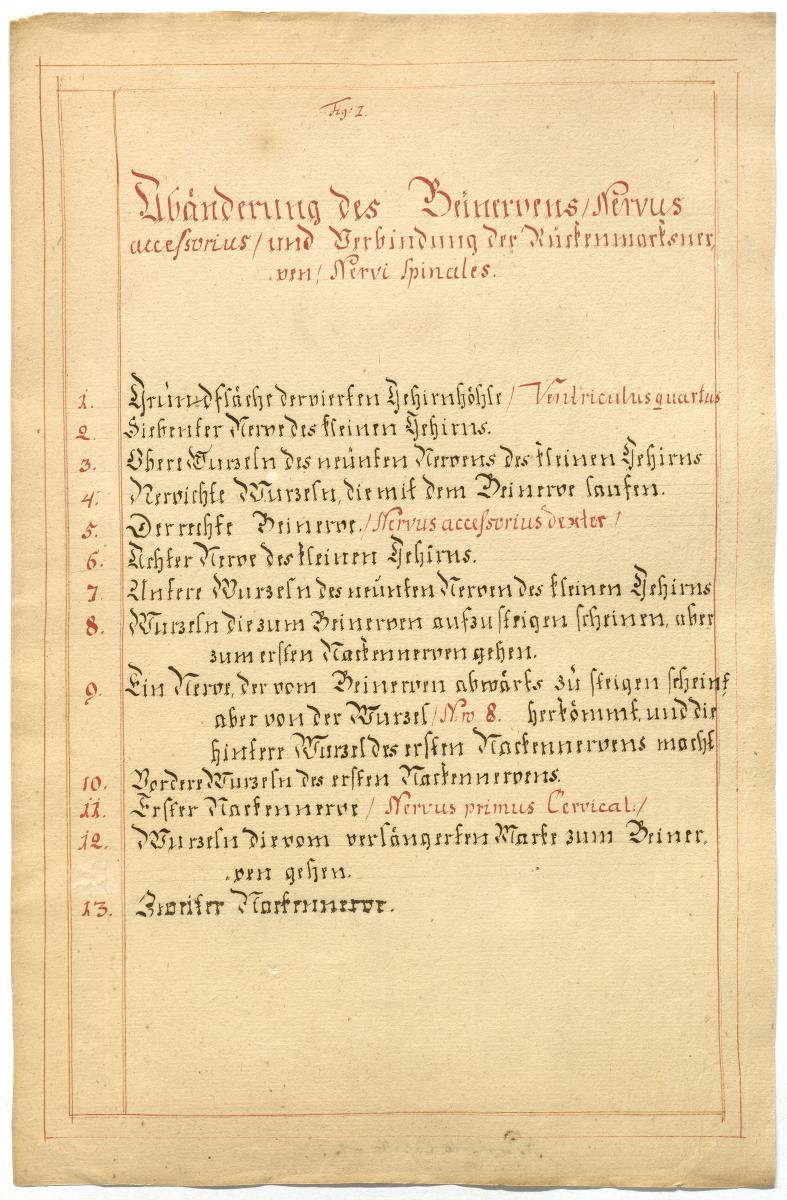 Fig: I.
Abänderung des Beinervens /Nervus
accessorius/ und Verbindung der Rückenmarksner,
ven/ Nervi spinales.
1. Grundfläche der vierten Gehirnhöhle / Ventriculus quartus
2. Siebenter Nerve des kleinen Gehirns.
3. Obere Wurzeln des neünten Nervens des kleinen Gehirns
4. Nervichte Wurzeln, die mit dem Beinerve laufen.
5. Der rechte Beinerve. /Nervus accessorius dexter/
6. Achter Nerve des kleinen Gehirns.
7. Untere Wurzeln des neünten Nerven des kleinen Gehirns
8. Wurzeln die zum Beinerven aufzusteigen scheinen, aber
zum ersten Nackennerven gehen.
9. Ein Nerve, der vom Beinerven abwärts zü steigen scheint
aber von der Wurzel /Nro 8. herkömmt, und die
hintere Wurzel des ersten Nackennervens macht
10. Vordere Wurzeln des ersten Nackennervens.
11. Erster Nackennerve / Nervus primus Cervical:/
12. Wurzeln die vom verlängerten Marke zum Beiner,
ven gehen.
13. Zweiter Nackennerve.